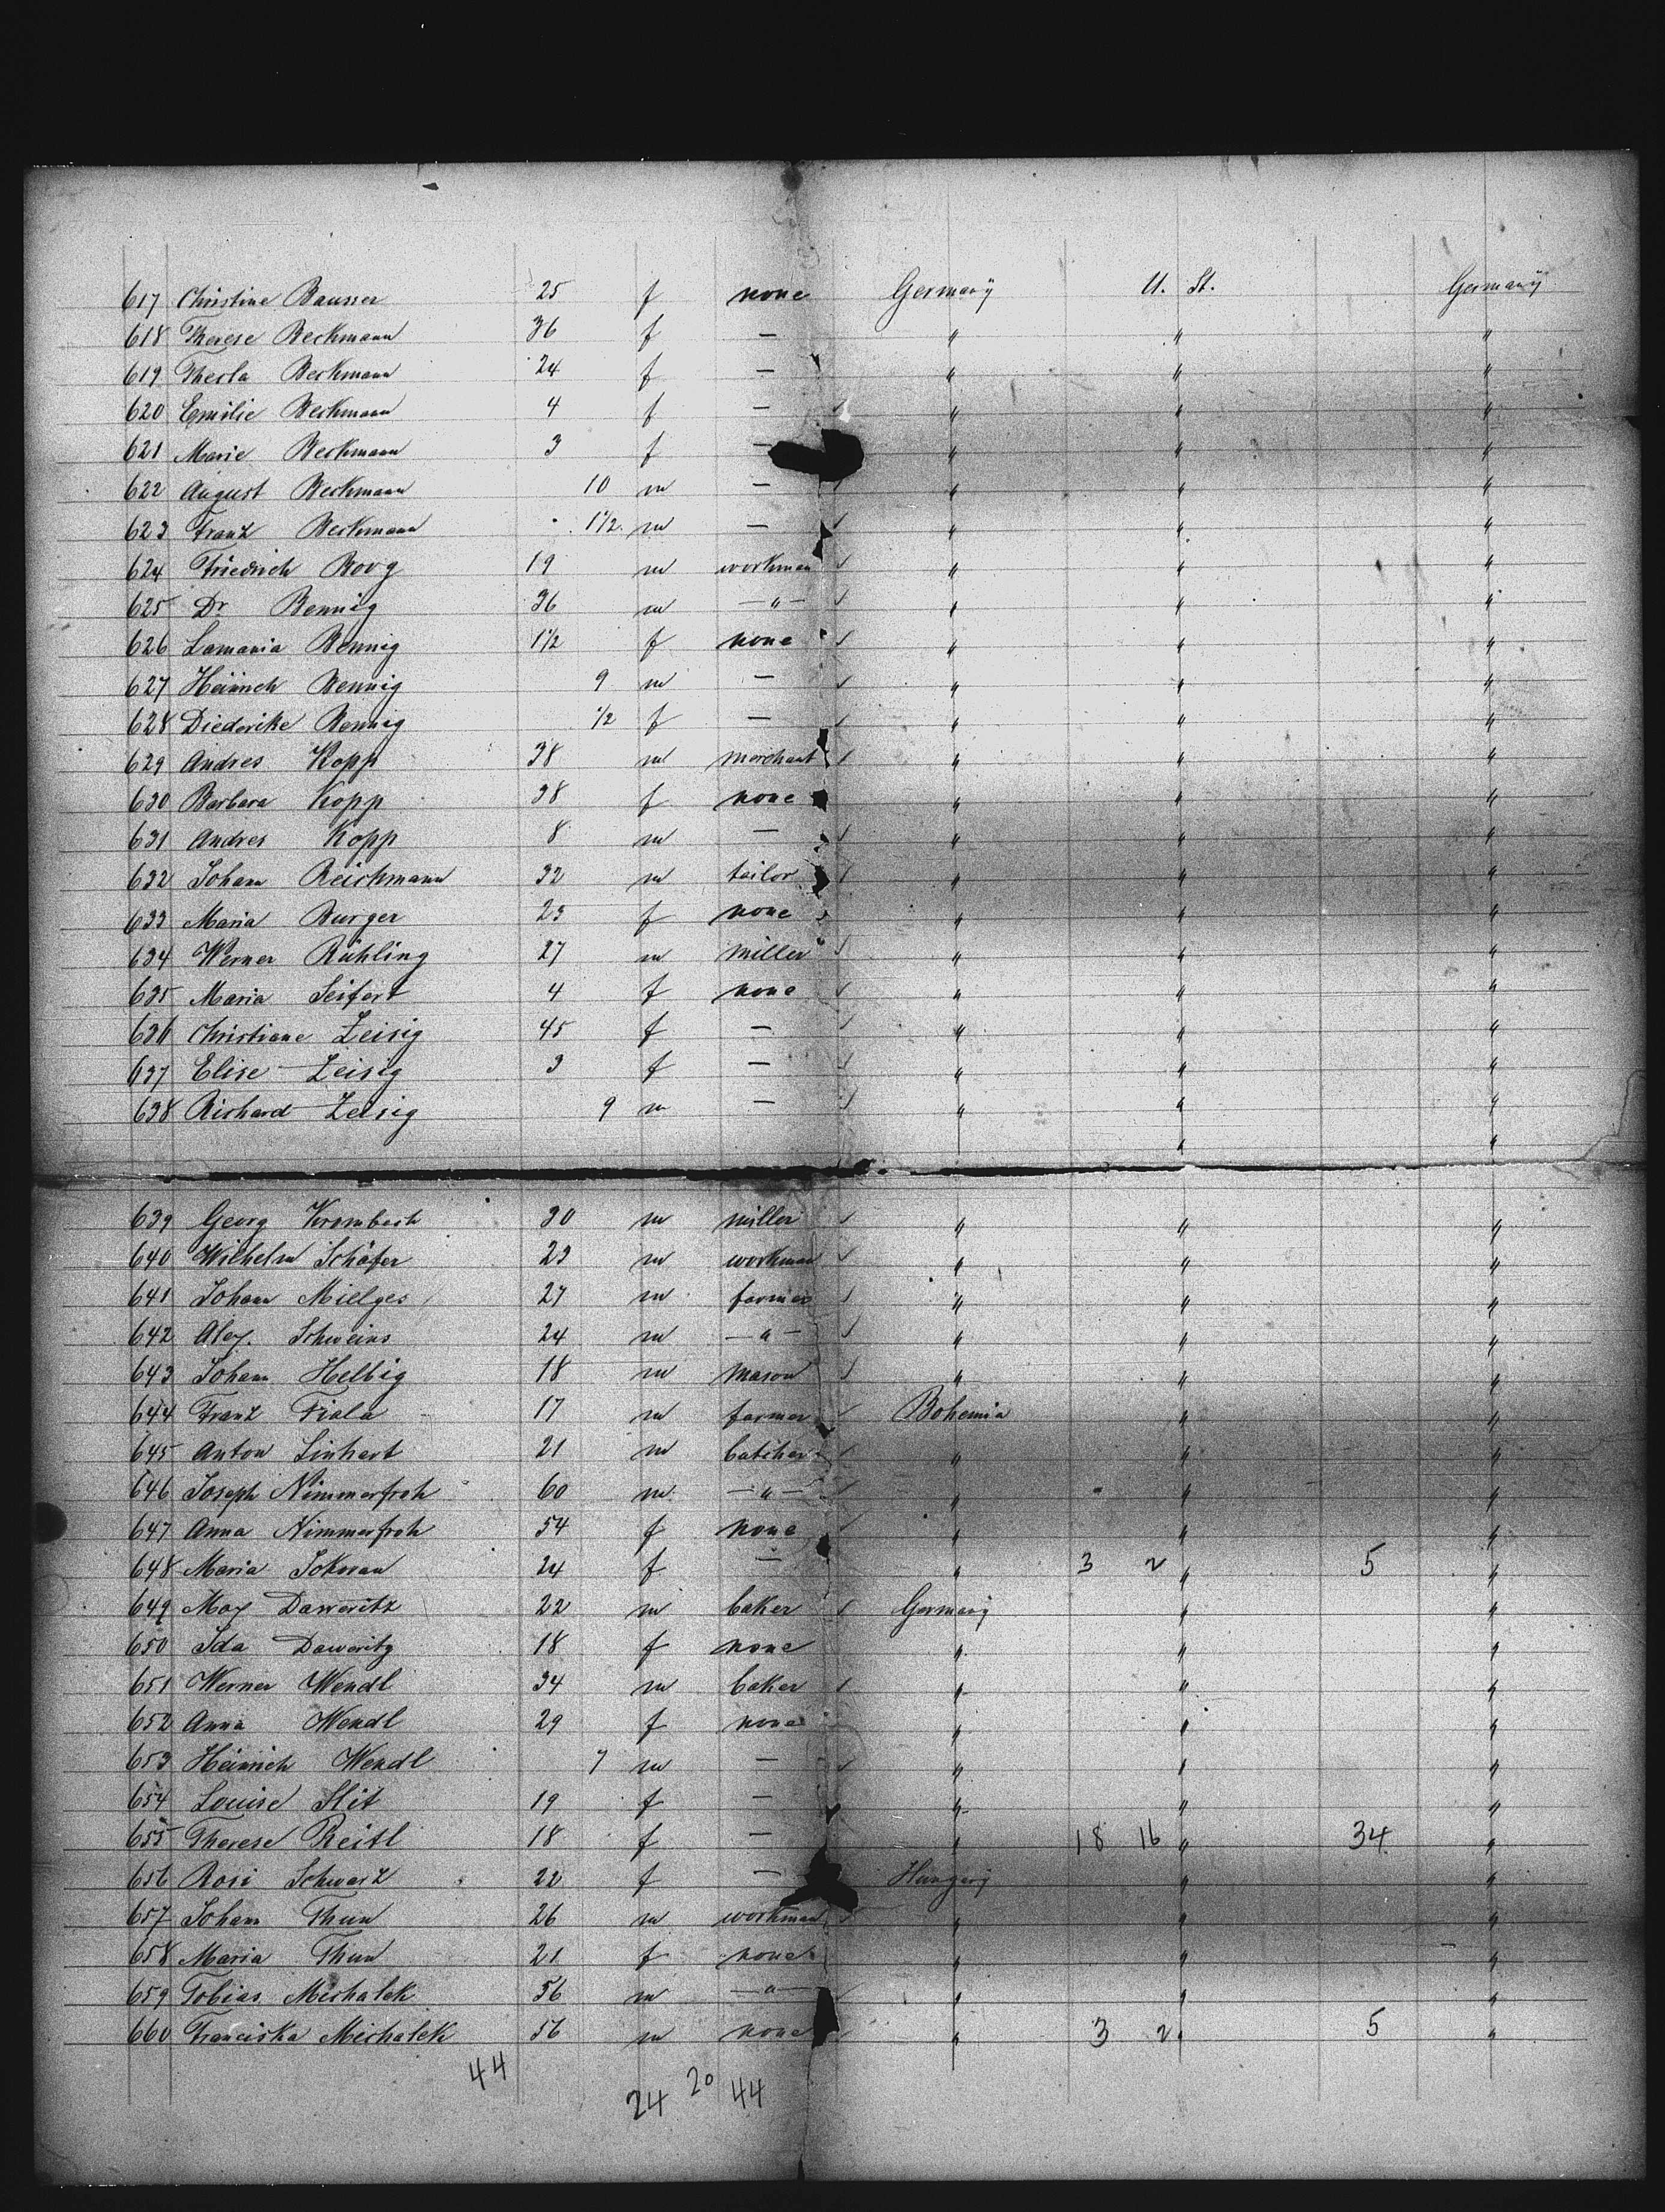 617 Christine Bausser 25 f none Germany U. St. Germany
618 Therese Beckmann 36 f — " " "
619 Thecla Beckmann 24 f — " " "
620 Emilie Beckmann 4 f — " " "
621 Marie Beckmann 3 f — " " "
622 August Beckmann 10 m — " " "
623 Franz Beckmann 1 1/2 m — " " "
624 Friedrich Boog 19 m workman " " "
625 Dr Bennig 36 m — " — " " "
626 Lamaria Bennig 1 1/2 f none " " "
627 Heinrich Bennig 9 m — " " "
628 Diederike Bennig 1/2 f — " " "
629 Andres Kopp 38 m merchant " " "
630 Barbara Kopp 38 f none " " "
631 Andres Kopp 8 m — " " "
632 Johann Reichmann 32 m tailor " " "
633 Maria Burger 23 f none " " "
634 Werner Rühling 27 m miller " " "
635 Maria Seifert 4 f none " " "
636 Christiane Zeisig 45 f — " " "
637 Elise Zeisig 3 f — " " "
638 Richard Zeisig 9 m — " " "
" "
639 Georg Krombech 30 m miller " " "
640 Wilhelm Schäfer 23 m workman " " "
641 Johann Mielges 27 m farmer " " "
642 Alex. Schweins 24 m — " — " " "
643 Johann Helbig 18 m mason " " "
644 Franz Fiala 17 m farmer Bohemia " "
645 Anton Linhart 21 m butcher " " "
646 Joseph Nimmerfroh 60 m — " — " " "
647 Anna Nimmerfroh 54 f none " " "
648 Maria 24 f — " 3 2 " 5 "
649 Max Daweritz 22 m baker Germany " "
650 Ida Daweritz 18 f none " " "
651 Werner Wendl 34 m baker " " "
652 Anna Wendl 29 f none " " "
653 Heinrich Wendl 7 m — " " "
654 Louise Slit 19 f — " " "
655 Therese Reitl 18 f — " 18 16 " 34 "
656 Rosi Schwarz 22 f — Hungary " "
657 Johann Thun 26 m workman " " "
658 Maria Thun 21 f none " " "
659 Tobias Michalek 56 m — " — " " "
660 Franciska Michalek 56 m none " 3 2 " 5 "
44 24 20 44